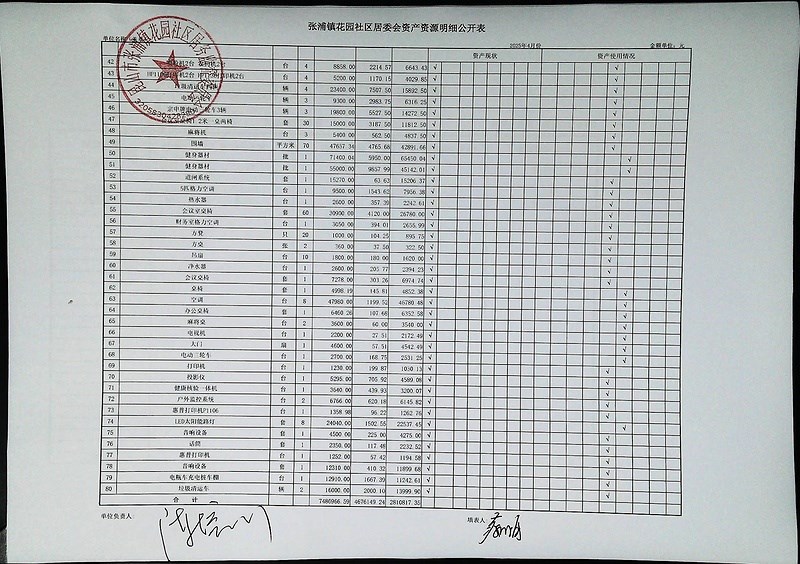 张浦镇花园社区居委会资产资源明细公开表
单位名称 2025年4月份 金额单位：元
资产现状 资产使用情况
42 台 4 8858.00 2214.57 6643.43 √ √
43 台 4 5200.00 1170.15 4029.85 √ √
44 辆 4 23400.00 7507.50 15892.50 √ √
45 辆 3 9300.00 2983.75 6316.25 √ √
46 辆 3 19800.00 5527.50 14272.50 √ √
47 套 30 15000.00 3187.50 11812.50 √ √
48 麻将机 台 3 5400.00 562.50 4837.50 √ √
49 围墙 平方米 70 47657.34 4765.68 42891.66 √ √
50 健身器材 批 1 71400.04 5950.00 65450.04 √ √
51 健身器材 批 1 55000.00 9857.99 45142.01 √ √
52 道闸系统 套 1 15270.00 63.63 15206.37 √ √
53 5匹格力空调 台 1 9500.00 1543.62 7956.38 √ √
54 热水器 台 1 2600.00 357.39 2242.61 √ √
55 会议室桌椅 套 60 30900.00 4120.00 26780.00 √ √
56 财务室格力空调 台 1 3050.00 394.01 2655.99 √ √
57 方凳 只 20 1000.00 104.25 895.75 √ √
58 方桌 张 2 360.00 37.50 322.50 √ √
59 吊扇 台 10 1800.00 180.00 1620.00 √ √
60 净水器 台 1 2600.00 205.77 2394.23 √ √
61 会议桌椅 套 1 7278.00 303.26 6974.74 √ √
62 桌椅 套 1 4998.19 145.81 4852.38 √ √
63 空调 台 8 47980.00 1199.52 46780.48 √ √
64 办公桌椅 套 1 6460.26 107.68 6352.58 √ √
65 麻将桌 台 2 3600.00 60.00 3540.00 √ √
66 电视机 台 1 2200.00 27.51 2172.49 √ √
67 大门 扇 1 4600.00 57.51 4542.49 √ √
68 电动三轮车 台 1 2700.00 168.75 2531.25 √ √
69 打印机 台 1 1230.00 199.87 1030.13 √ √
70 投影仪 套 1 5295.00 705.92 4589.08 √ √
71 健康核验一体机 套 1 3640.00 439.93 3200.07 √ √
72 户外监控系统 台 2 6766.00 620.18 6145.82 √ √
73 惠普打印机P1106 台 1 1358.98 96.22 1262.76 √ √
74 LED太阳能路灯 套 8 24040.00 1502.55 22537.45 √ √
75 音响设备 套 1 4500.00 225.00 4275.00 √ √
76 话筒 套 1 2350.00 117.48 2232.52 √ √
77 惠普打印机 台 1 1252.00 57.42 1194.58 √ √
78 音响设备 套 1 12310.00 410.32 11899.68 √ √
79 电瓶车充电桩车棚 台 1 12910.00 1667.39 11242.61 √ √
80 垃圾清运车 辆 2 16000.00 2000.10 13999.90 √ √
合 计 7486966.59 4676149.24 2810817.35
单位负责人： 填表人：